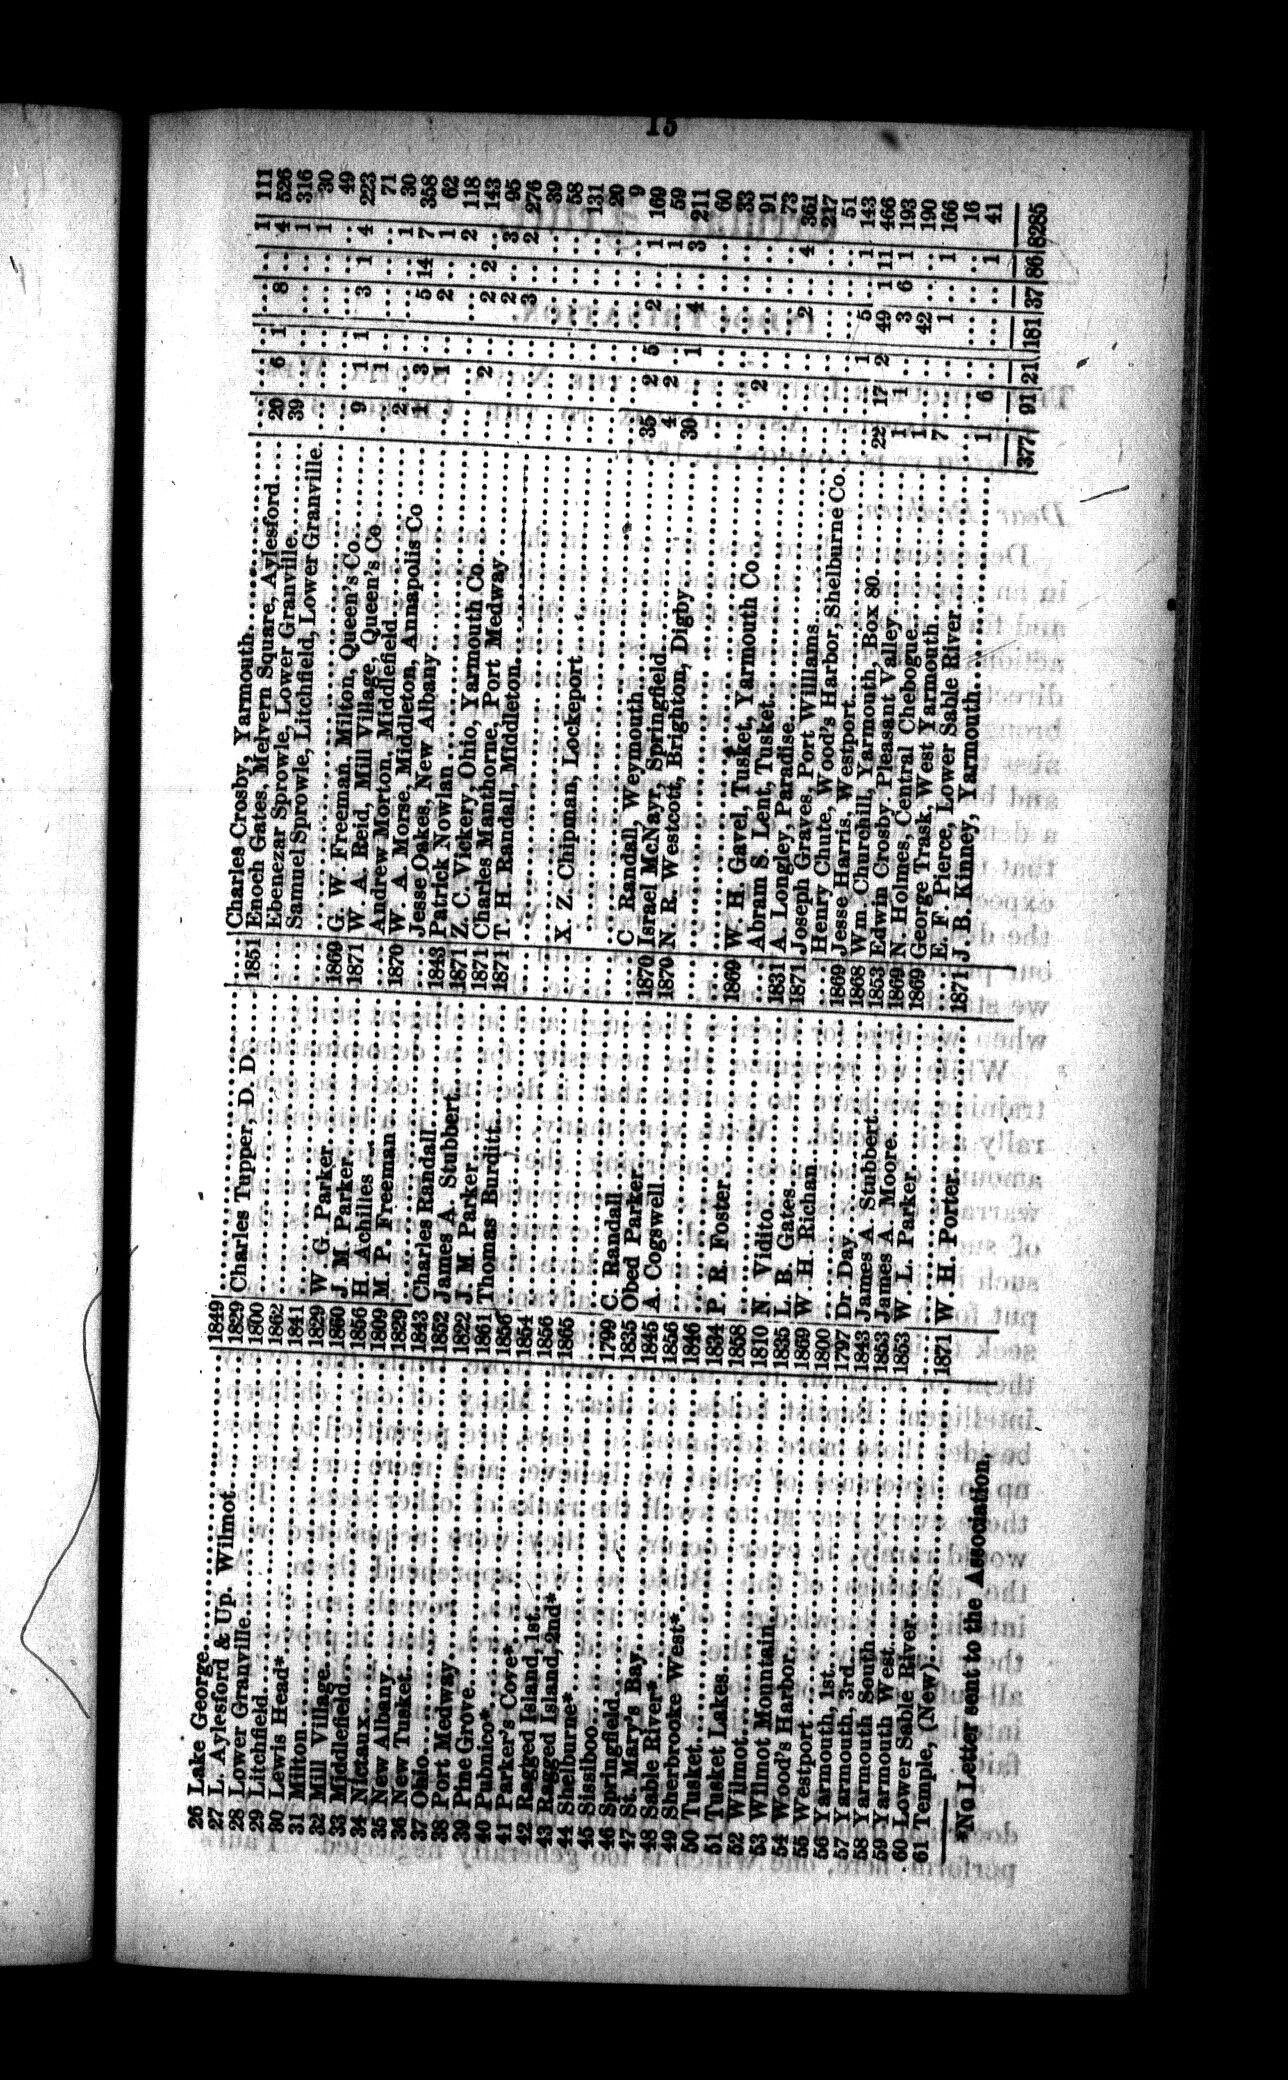 15
26 Lake George 1849 Charles Crosby, Yarmouth 1 111
27 L. Aylesford & Up. Wilmot 1829 Charles Tupper, D. D. 1851 Enoch Gates, Melvern Square, Aylesford 20 6 1 8 4 526
28 Lower Granville 1800 Ebenezar Sprowle, Lower Granville 39 1 316
29 Litchfield 1862 Samuel Sprowle, Litchfield, Lower Granville. 1 30
30 Lewis Head* 1841 49
31 Milton 1829 W. G. Parker 1869 G. W. Freeman, Milton, Queen's Co. 9 1 1 3 1 4 223
32 Mill Village 1860 J. M. Parker 1871 W. A. Reid, Mill Village, Queen's Co 1 71
33 Middlefield 1856 H. Achilles Andrew Morton, Middlefield 2 1 30
34 Nictaux 1809 M. P. Freeman 1870 W. A. Morse, Middleton, Annapolis Co 1 3 5 14 7 358
35 New Albany 1829 Jesse Oakes, New Albany 1 2 1 62
36 New Tusket 1843 Charles Randall 1843 Patrick Nowlan 2 118
37 Ohio 1852 James A. Stubbert 1871 Z. C. Vickery, Ohio, Yarmouth Co 2 2 2 143
38 Port Medway 1822 J. M. Parker 1871 Charles Manthorne, Port Medway 2 3 95
39 Pine Grove 1861 Thomas Burditt 1871 T. H. Randall, Middleton 3 2 276
40 Pubnico* 1856 39
41 Parker's Cove* 1854 58
42 Ragged Island, 1st 1856 X. Z. Chipman, Lockeport 131
43 Ragged Island, 2nd* 1865 20
44 Shelburne* 9
45 Sissiboo 1799 C. Randall C. Randall, Weymouth 35 2 5 2 1 169
46 Springfield 1835 Obed Parker 1870 Israel McNayr, Springfield 4 2 1 59
47 St. Mary's Bay 1845 A. Cogswell 1870 N. R. Westcott, Brighton, Digby 30 1 4 3 211
48 Sable River* 1856 60
49 Sherbrooke West* 1846 33
50 Tusket 1834 P. R. Foster 1869 W. H. Gavel, Tusket, Yarmouth Co 2 91
51 Tusket Lakes 1858 Abram S. Lent, Tusket 73
52 Wilmot 1810 N. Vidito 1831 A. Longley, Paradise 2 4 361
53 Wilmot Mountain 1835 L. B. Gates 1871 Joseph Graves, Port Williams 217
54 Wood's Harbor 1869 W. H. Richan Henry Chute, Wood's Harbor, Shelburne Co 51
55 Westport 1800 1869 Jesse Harris, Westport 1 5 1 143
56 Yarmouth, 1st 1797 Dr Day 1868 Wm Churchill, Yarmouth, Box 80 22 17 2 49 1 11 466
57 Yarmouth, 3rd 1843 James A. Stubbert 1853 Edwin Crosby, Pleasant Valley 1 1 3 6 1 193
58 Yarmouth South 1853 James A. Moore 1869 N Holmes, Central Chebogue 1 42 190
59 Yarmouth West 1853 W. L. Parker 1869 George Trask, West Yarmouth 7 1 1 166
60 Lower Sable River E. F. Pierce, Lower Sable River 16
61 Temple, (New) 1871 W. H. Porter 1871 J. B. Kinney, Yarmouth 1 6 1 41
377 91 21 181 37 86 8285
*No Letter sent to the Association.